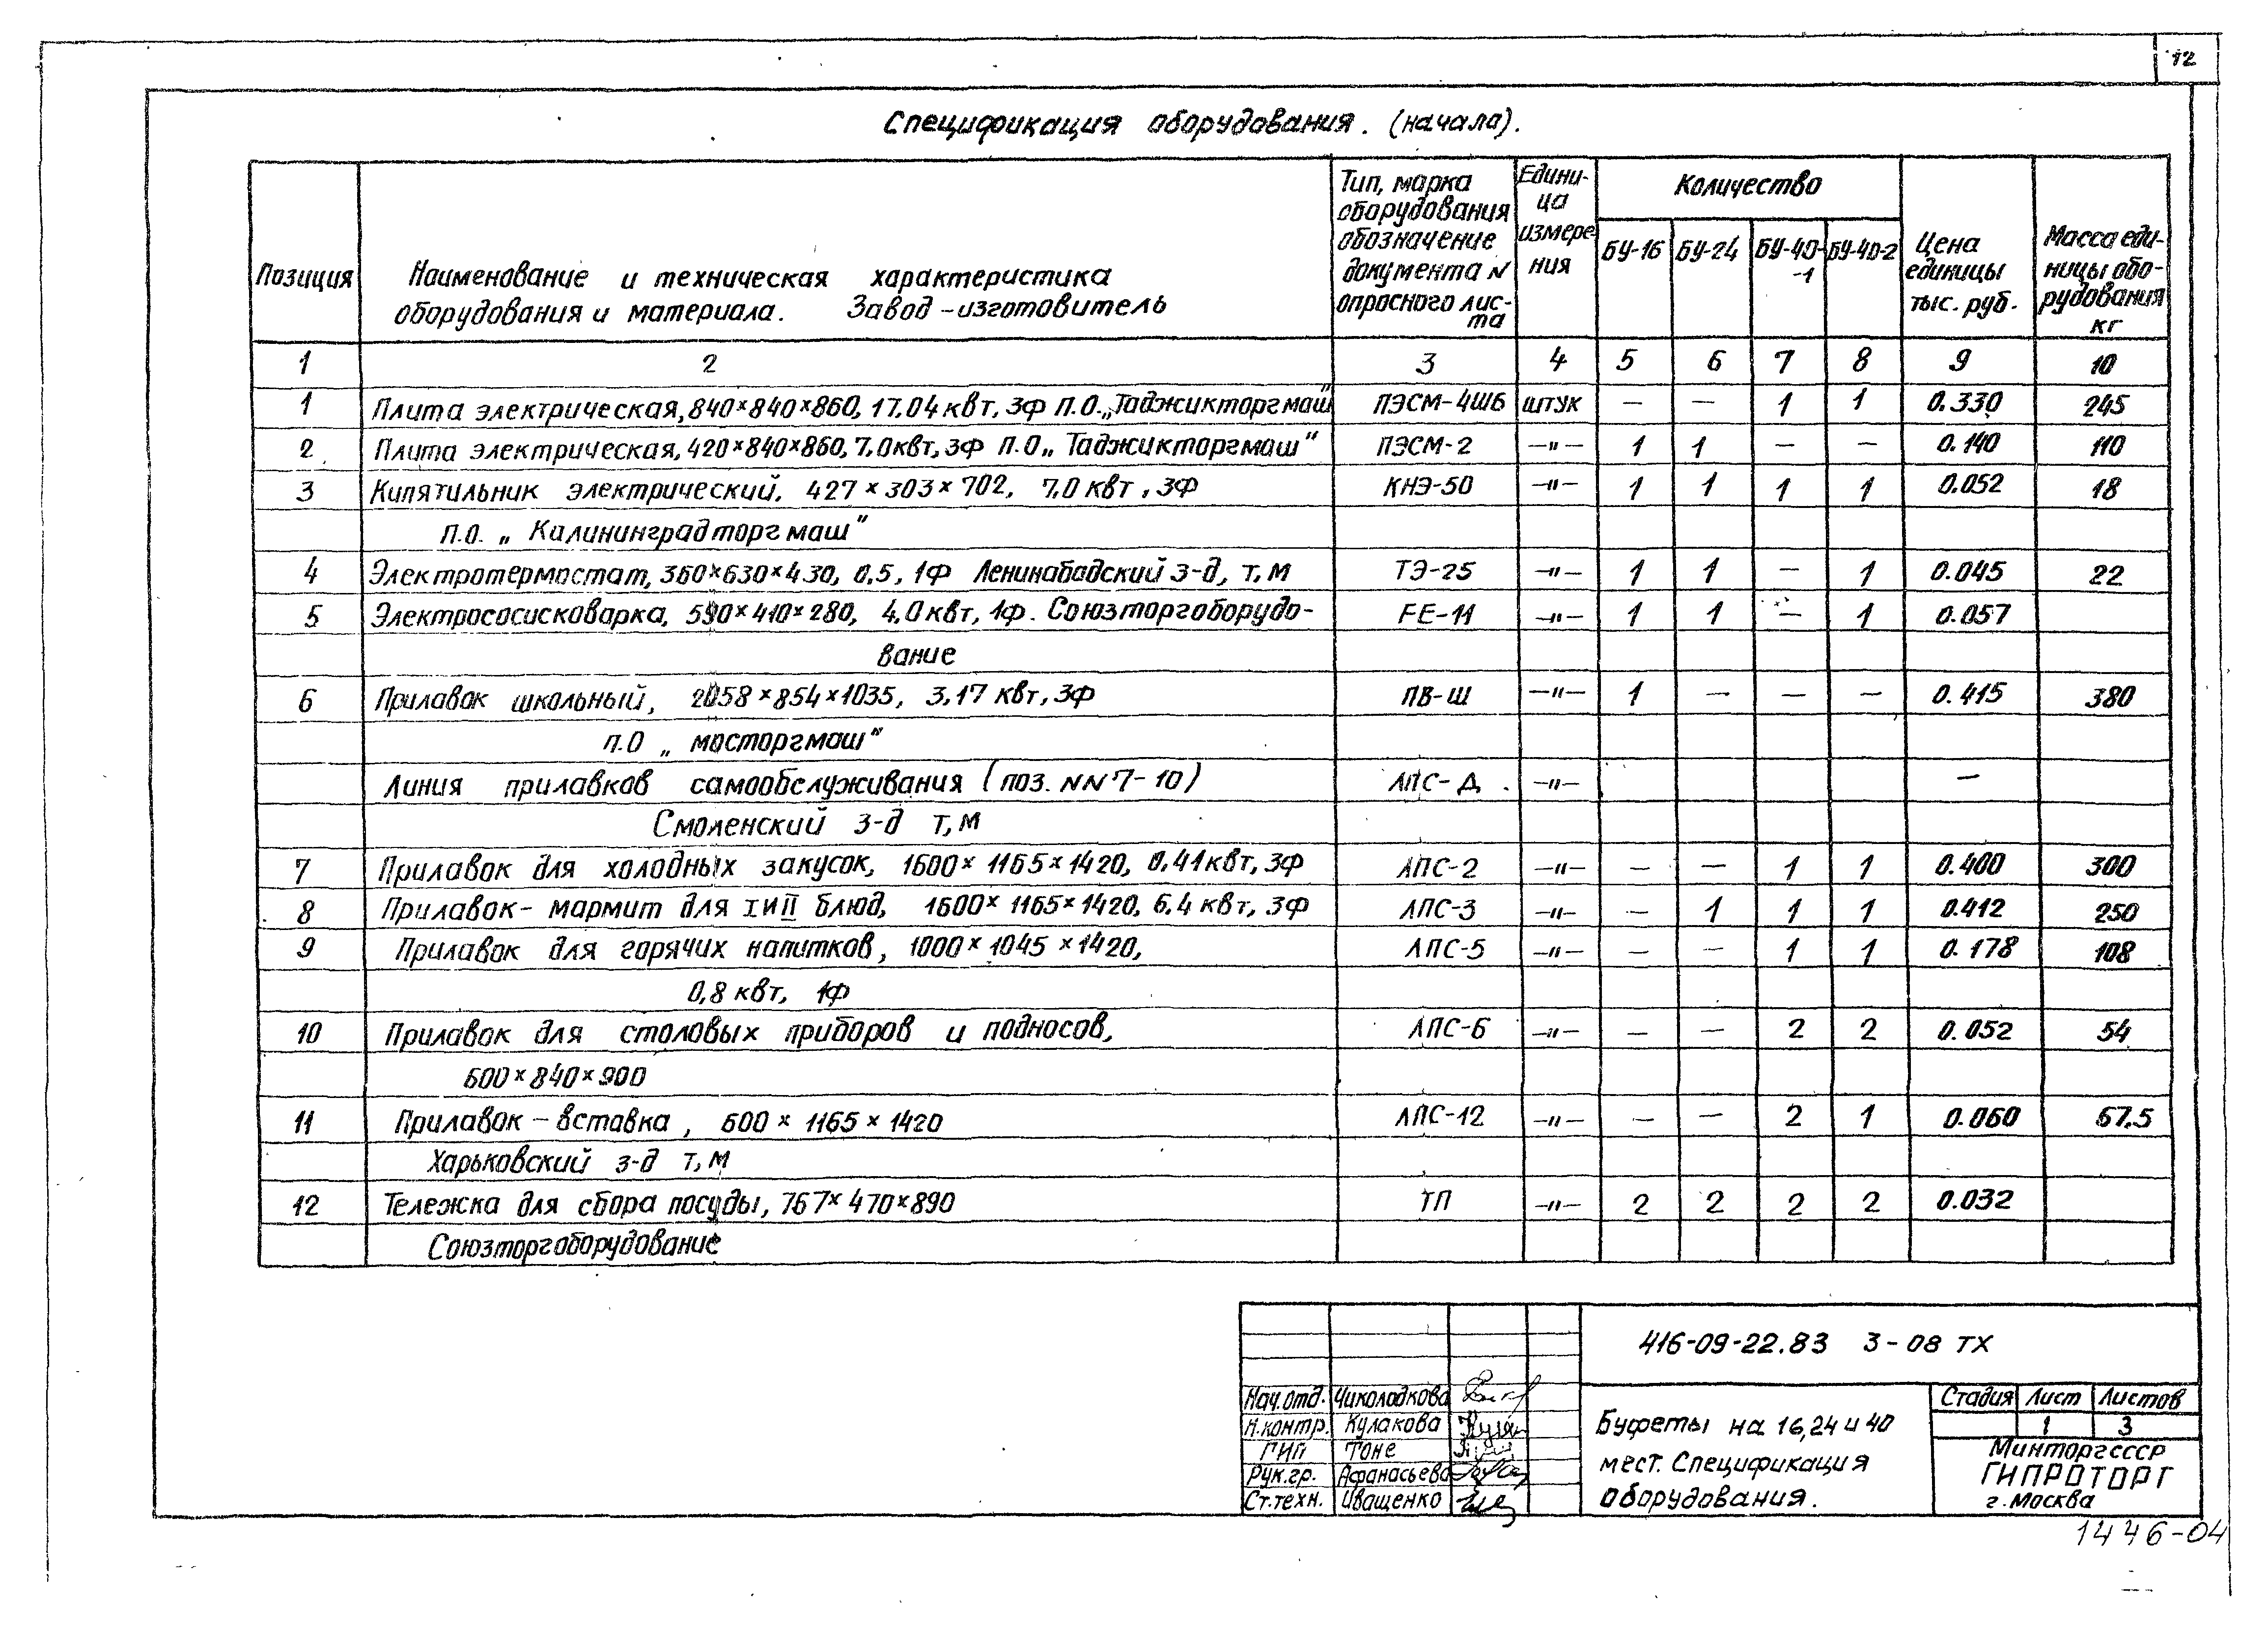 12
Спецификация оборудования. (начала).
Позиция
Наименование и техническая характеристика
оборудования и материала. Завод-изготовитель
Тип, марка
оборудования
обозначение
документа N
опросного лис-
та
Едини-
ца
измере-
ния
Количество
БУ-16 БУ-24 БУ-40- БУ-40-2
-1
Цена
единицы
тыс. руб.
Масса еди-
ницы обо-
рудования
кг
1 2 3 4 5 6 7 8 9 10
1 Плита электрическая, 840×840×860, 17.04 квт, 3ф П.О. „Таджикторгмаш" ПЭСМ-4ШБ штук — — 1 1 0.330 245
2 Плита электрическая, 420×840×860, 7,0квт, 3ф П.О „Таджикторгмаш" ПЭСМ-2 —"— 1 1 — — 0.140 110
3 Кипятильник электрический, 427×303×702, 7,0 квт, 3ф КНЭ-50 —"— 1 1 1 1 0.052 18
П.О. „Калининградторгмаш"
4 Электротермостат, 360×630×430, 0.5, 1ф Ленинабадский з-д, т,м ТЭ-25 —"— 1 1 — 1 0.045 22
5 Электрососисковарка, 590×410×280, 4,0квт, 1ф. Союзторгоборудо- FE-11 —"— 1 1 — 1 0.057
вание
6 Прилавок школьный, 2058×854×1035, 3,17 квт, 3ф ПВ-Ш —"— 1 — — — 0.415 380
П.О „мосторгмаш"
Линия прилавков самообслуживания (поз. NN 7-10) ЛПС-Д. —"— —
Смоленский з-д т,м
7 Прилавок для холодных закусок, 1600×1165×1420, 0,41квт, 3ф ЛПС-2 —"— — — 1 1 0.400 300
8 Прилавок-мармит для I и II блюд, 1600×1165×1420, 6,4 квт, 3ф ЛПС-3 —"— — 1 1 1 0.412 250
9 Прилавок для горячих напитков, 1000×1045×1420, ЛПС-5 —"— — — 1 1 0.178 108
0,8 квт, 1ф
10 Прилавок для столовых приборов и подносов, ЛПС-6 —"— — — 2 2 0.052 54
600×840×900
11 Прилавок-вставка, 600×1165×1420 ЛПС-12 —"— — — 2 1 0.060 67,5
Харьковский з-д т,м
12 Тележка для сбора посуды, 767×470×890 ТП —"— 2 2 2 2 0.032
Союзторгоборудование
416-09-22.83 3-08 ТХ
Нач.отд. Чиколодкова
Н.контр. Кулакова
ГИП Тоне
Рук.гр. Афанасьева
Ст.техн. Иващенко
Буфеты на 16,24 и 40
мест. Спецификация
оборудования.
Стадия Лист Листов
1 3
Минторгсссr
ГИПРОТОРГ
г. Москва
1446-04